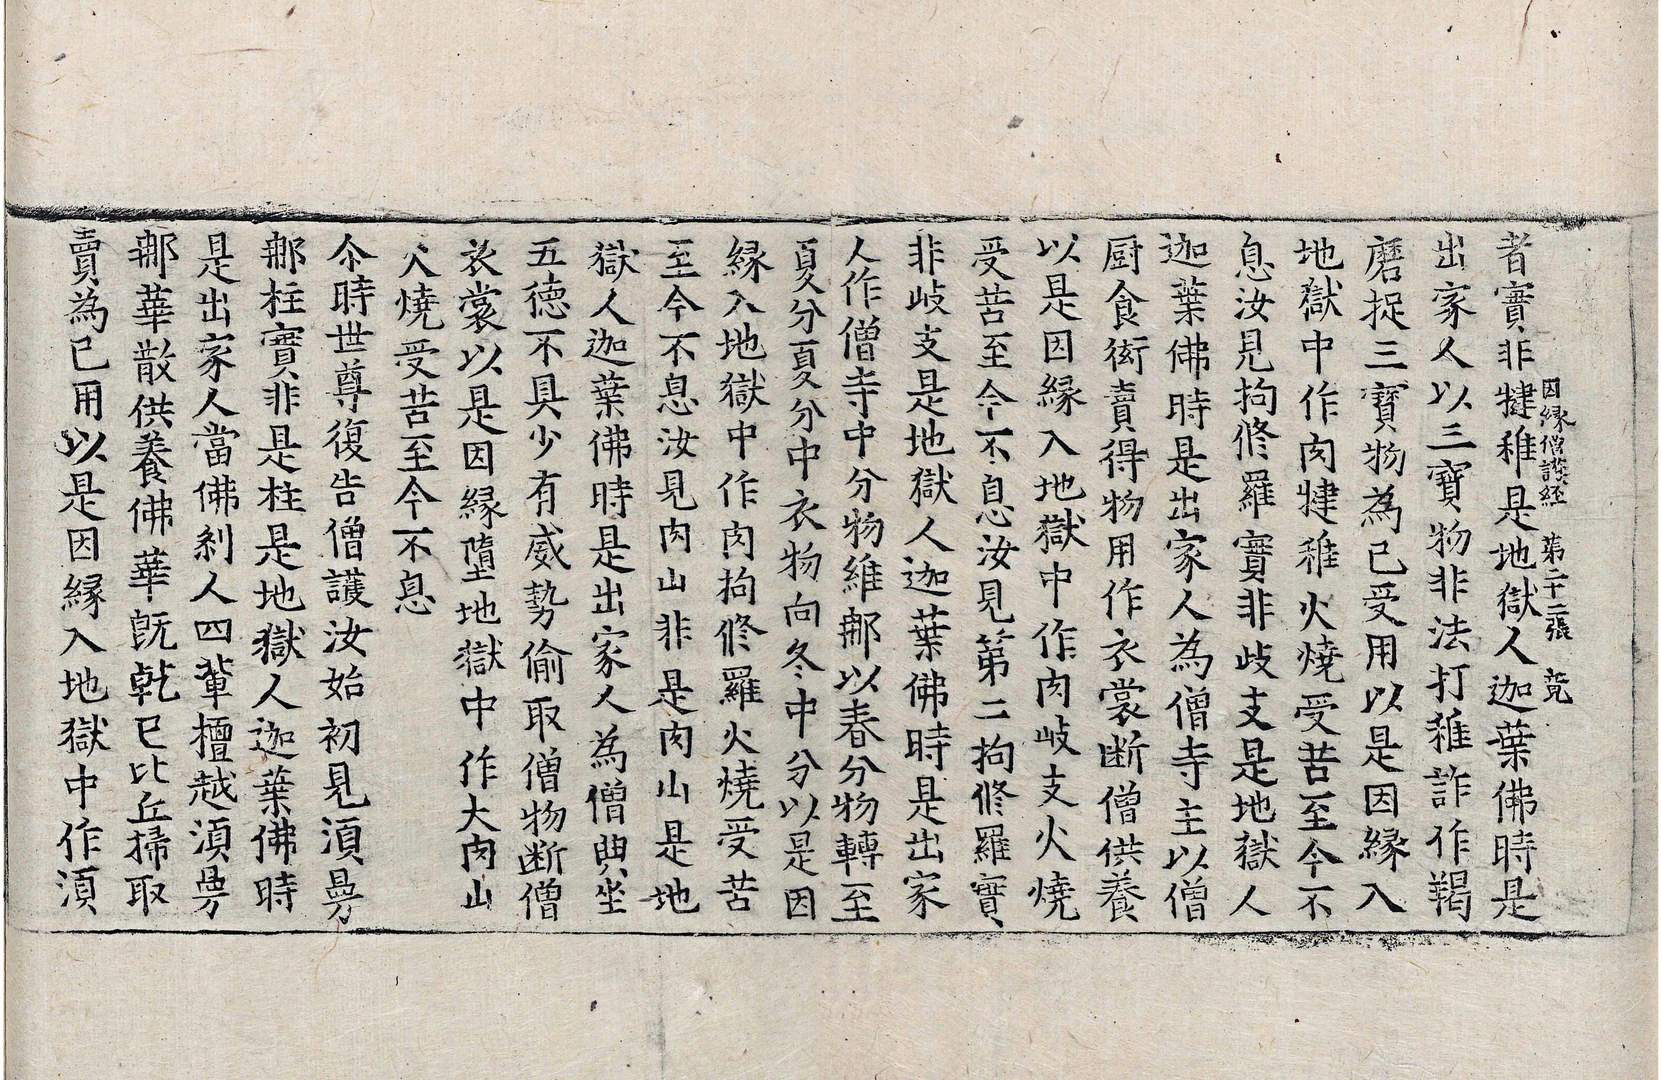 者實非犍稚是地獄人迦葉佛時是
因緣僧護經　第二十二張　竟
出家人以三寶物非法打稚詐作羯
磨捉三寶物為已受用以是因緣入
地獄中作肉犍稚火燒受苦至今不
息汝見拘修羅實非歧支是地獄人
迦葉佛時是出家人為僧寺主以僧
厨食衒賣得物用作衣裳断僧供養
以是因緣入地獄中作肉歧支火燒
受苦至今不息汝見第二拘修羅實
非歧支是地獄人迦葉佛時是出家
人作僧寺中分物維那以春分物轉至
夏分夏分中衣物向冬中分以是因
緣入地獄中作肉拘修羅火燒受苦
至今不息汝見肉山非是肉山是地
獄人迦葉佛時是出家人為僧典坐
五德不具少有威勢偷取僧物断僧
衣裳以是因緣墮地獄中作大肉山
火燒受苦至今不息
尒時世尊復告僧護汝始初見湏曼
那柱實非是柱是地獄人迦葉佛時
是出家人當佛刹人四軰檀越湏曼
那華散供養佛華旣乹已比丘掃取
賣為已用以是因緣入地獄中作湏